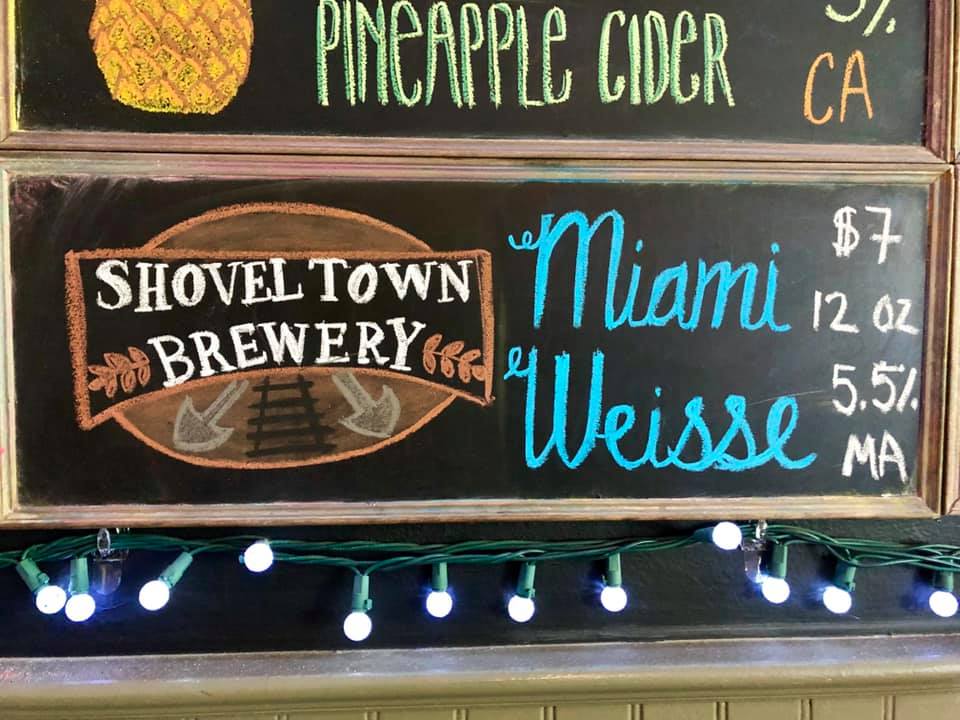 PINEAPPLE CIDER
5%
CA
SHOVEL TOWN
BREWERY
Miami
Weisse
$7
12 OZ
5.5%
MA